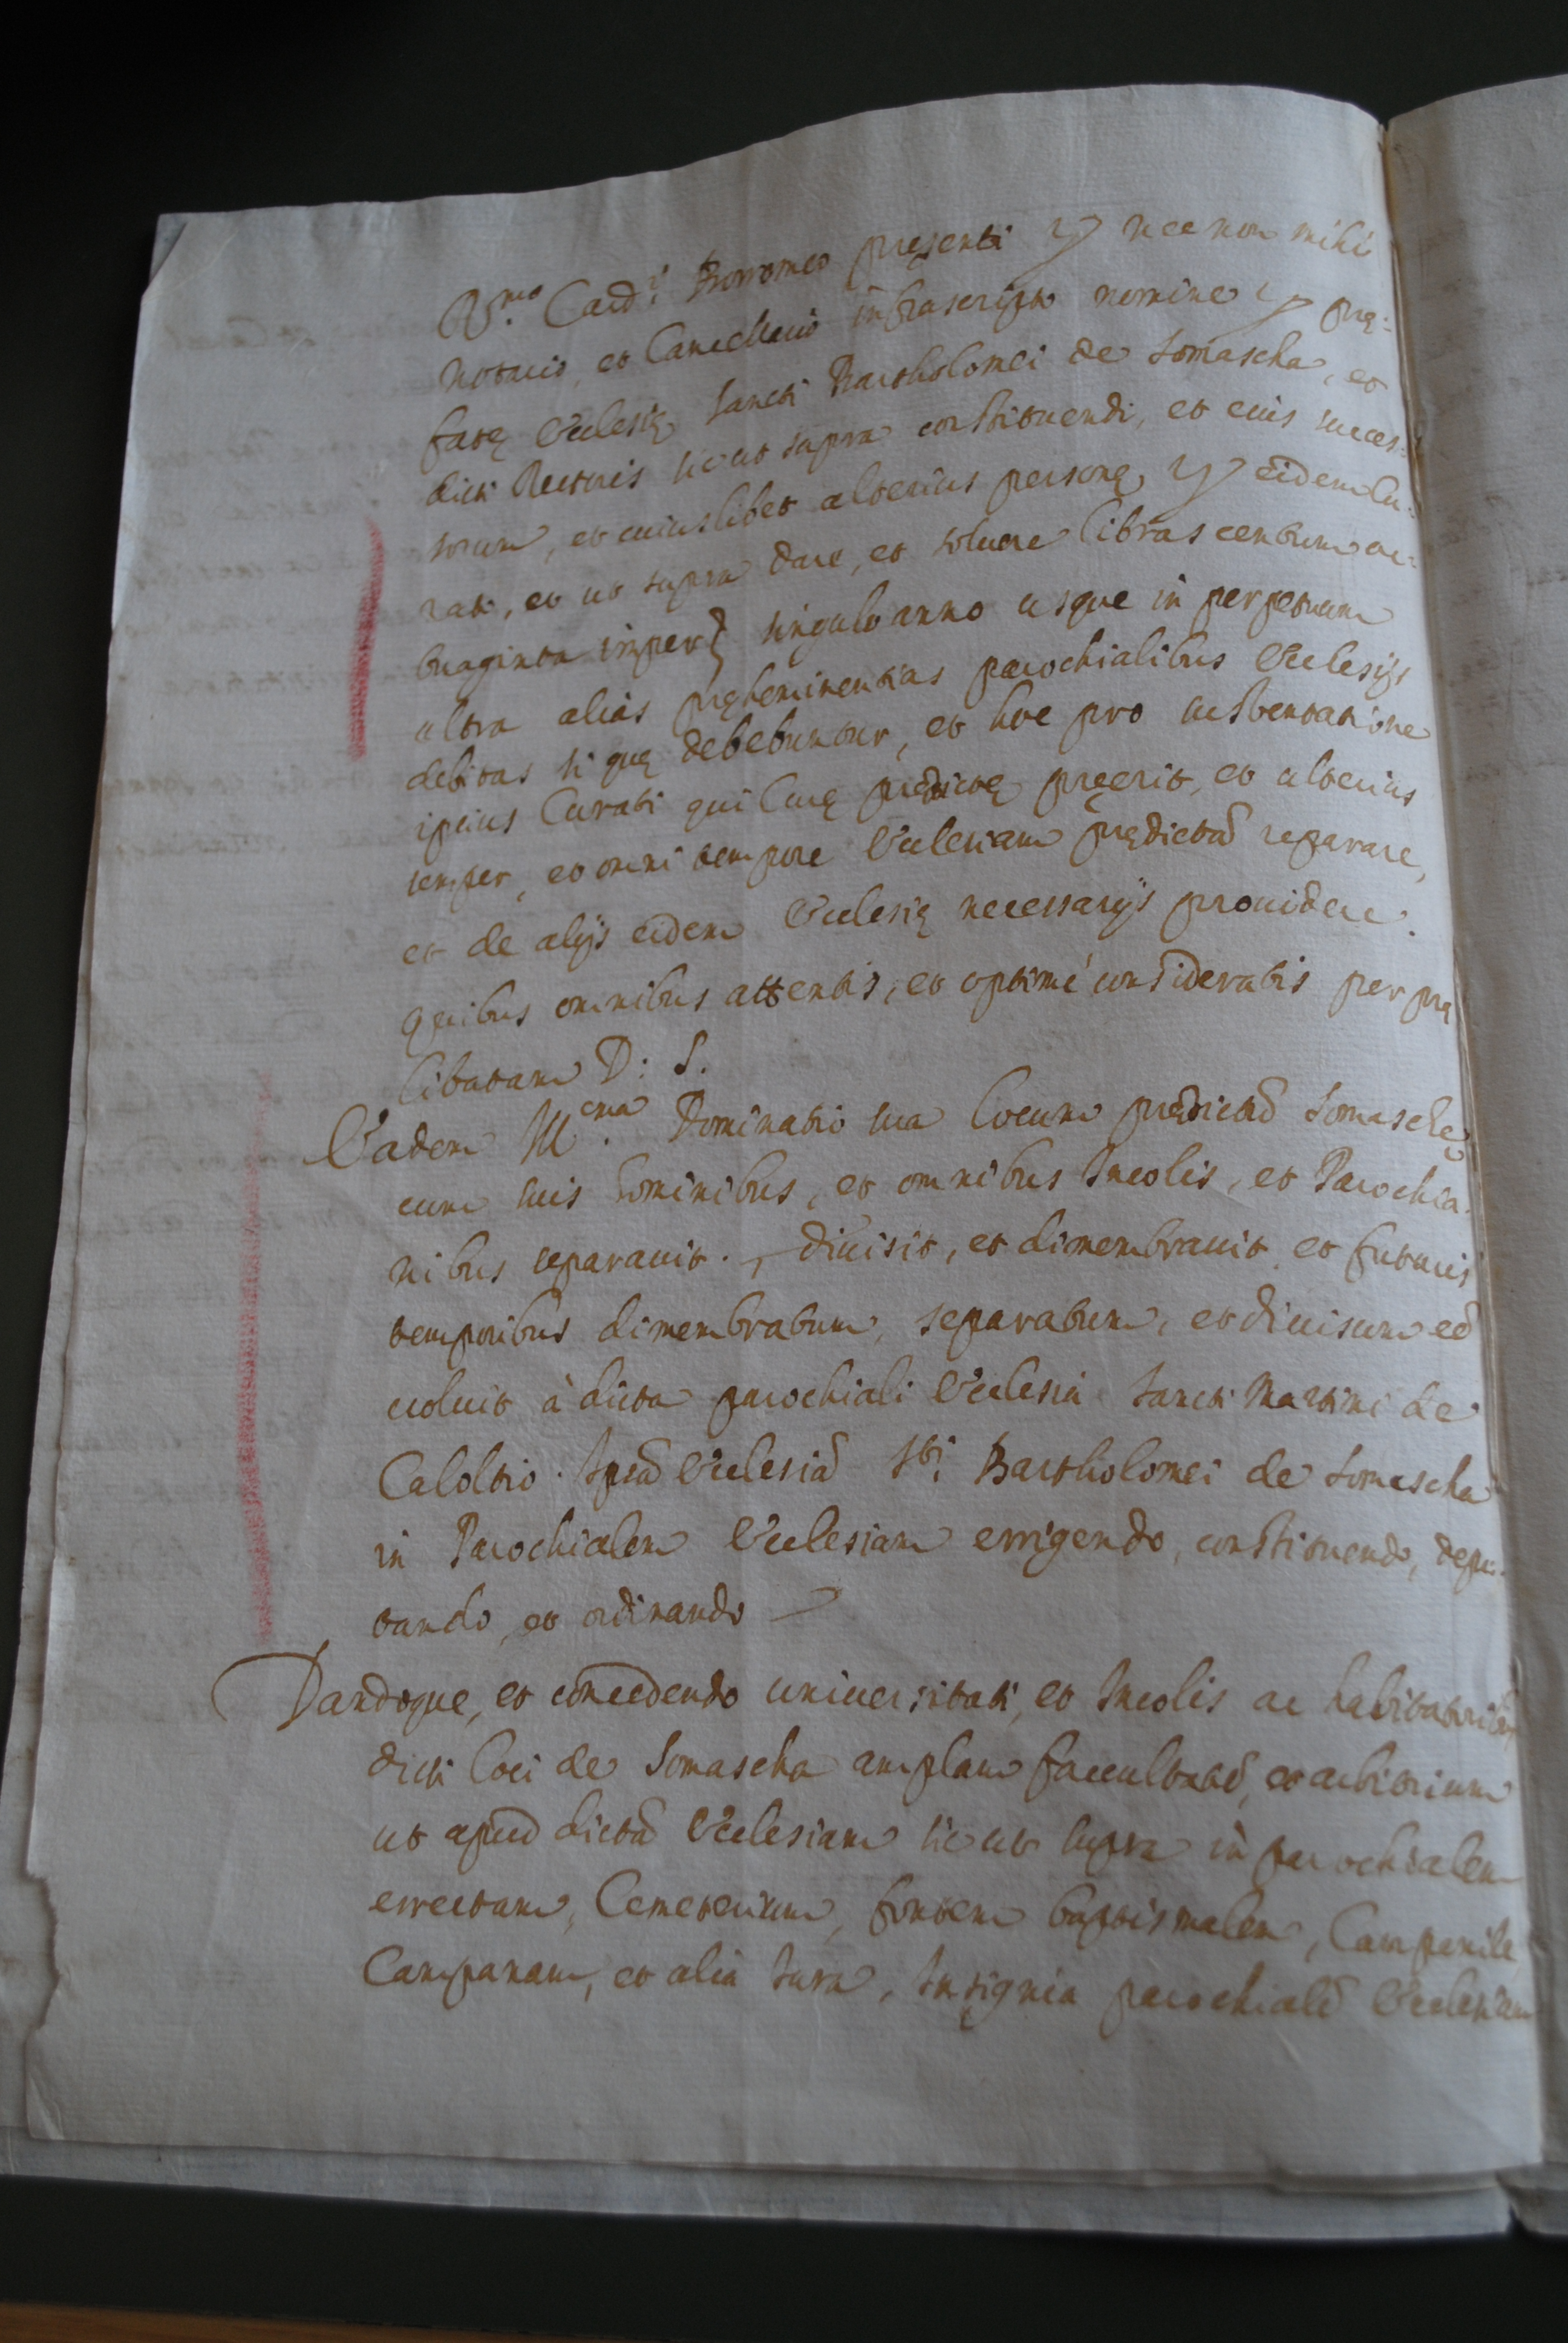 R.mo Card.i Borromeo pręsenti & nec non mihi
Notario, et Cancellario infrascripto nomine & prę:
fatę Ecclesię Sancti Bartholomei de Somascha, et
dicti Rectoris sic ut supra constituendi, et eius succes:
sorum, et cuiuslibet alterius personę, & eidem Cu:
rati, et ut supra dare, et soluere libras centum oc:
tuaginta imper. singulo anno usque in perpetuum
ultra alias pręheminentias parochialibus Ecclesijs
debitas si quę debebuntur, et hoc pro sustentatione
ipsius Curati qui Curę prędictę pręerit, et alterius
semper, et omni tempore Ecclesiam prędictã reparare,
et de alijs eidem Ecclesię necessarijs prouidere.
Quibus omnibus attentis, et optimè consideratis per prę
libatam D: S.
Eadem Ill.ma Dominatio sua locum prędictũ Somaschę
cum suis hominibus, et omnibus Incolis, et Parochia:
nibus separauit, diuisit, et dimembrauit et futuris
temporibus dimembratum, separatum, et diuisum eẽ
uoluit à dicta parochiali Ecclesia Sancti Martini de
Caloltio. Ipsã Ecclesiã S.ti Bartholomei de Somascha
in Parochialem Ecclesiam errigendo, constituendo, depu:
tando, et ordinando
Dandoque, et concedendo uniuersitati, et Incolis ac habitatoribus
dicti loci de Somascha amplam facultatẽ, et arbitrium
ut apud dictã Ecclesiam sic ut supra in parochialem
errectam, Cemeterium, fontem baptismalem, Campanile
Campanam, et alia Iura, Insignia parochialẽ Ecclesiam